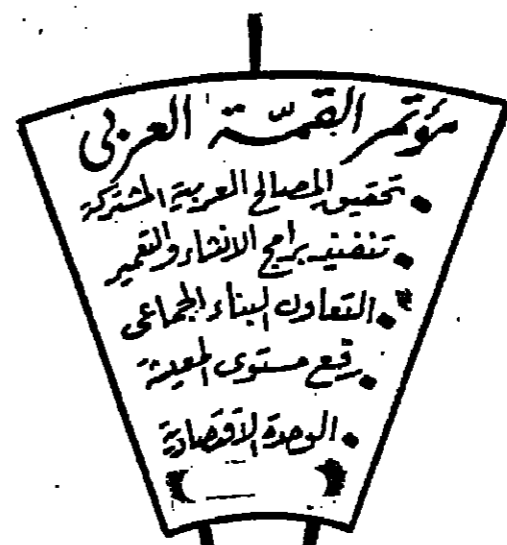 مؤتمر القمّة العربى
• تحقيق المصالح العربية المشتركة
• تنفيذ برامج الانشاء والتعمير
• التعاون البناء الجماعى
• رفع مستوى المعيشة
• الوحدة الاقتصادية